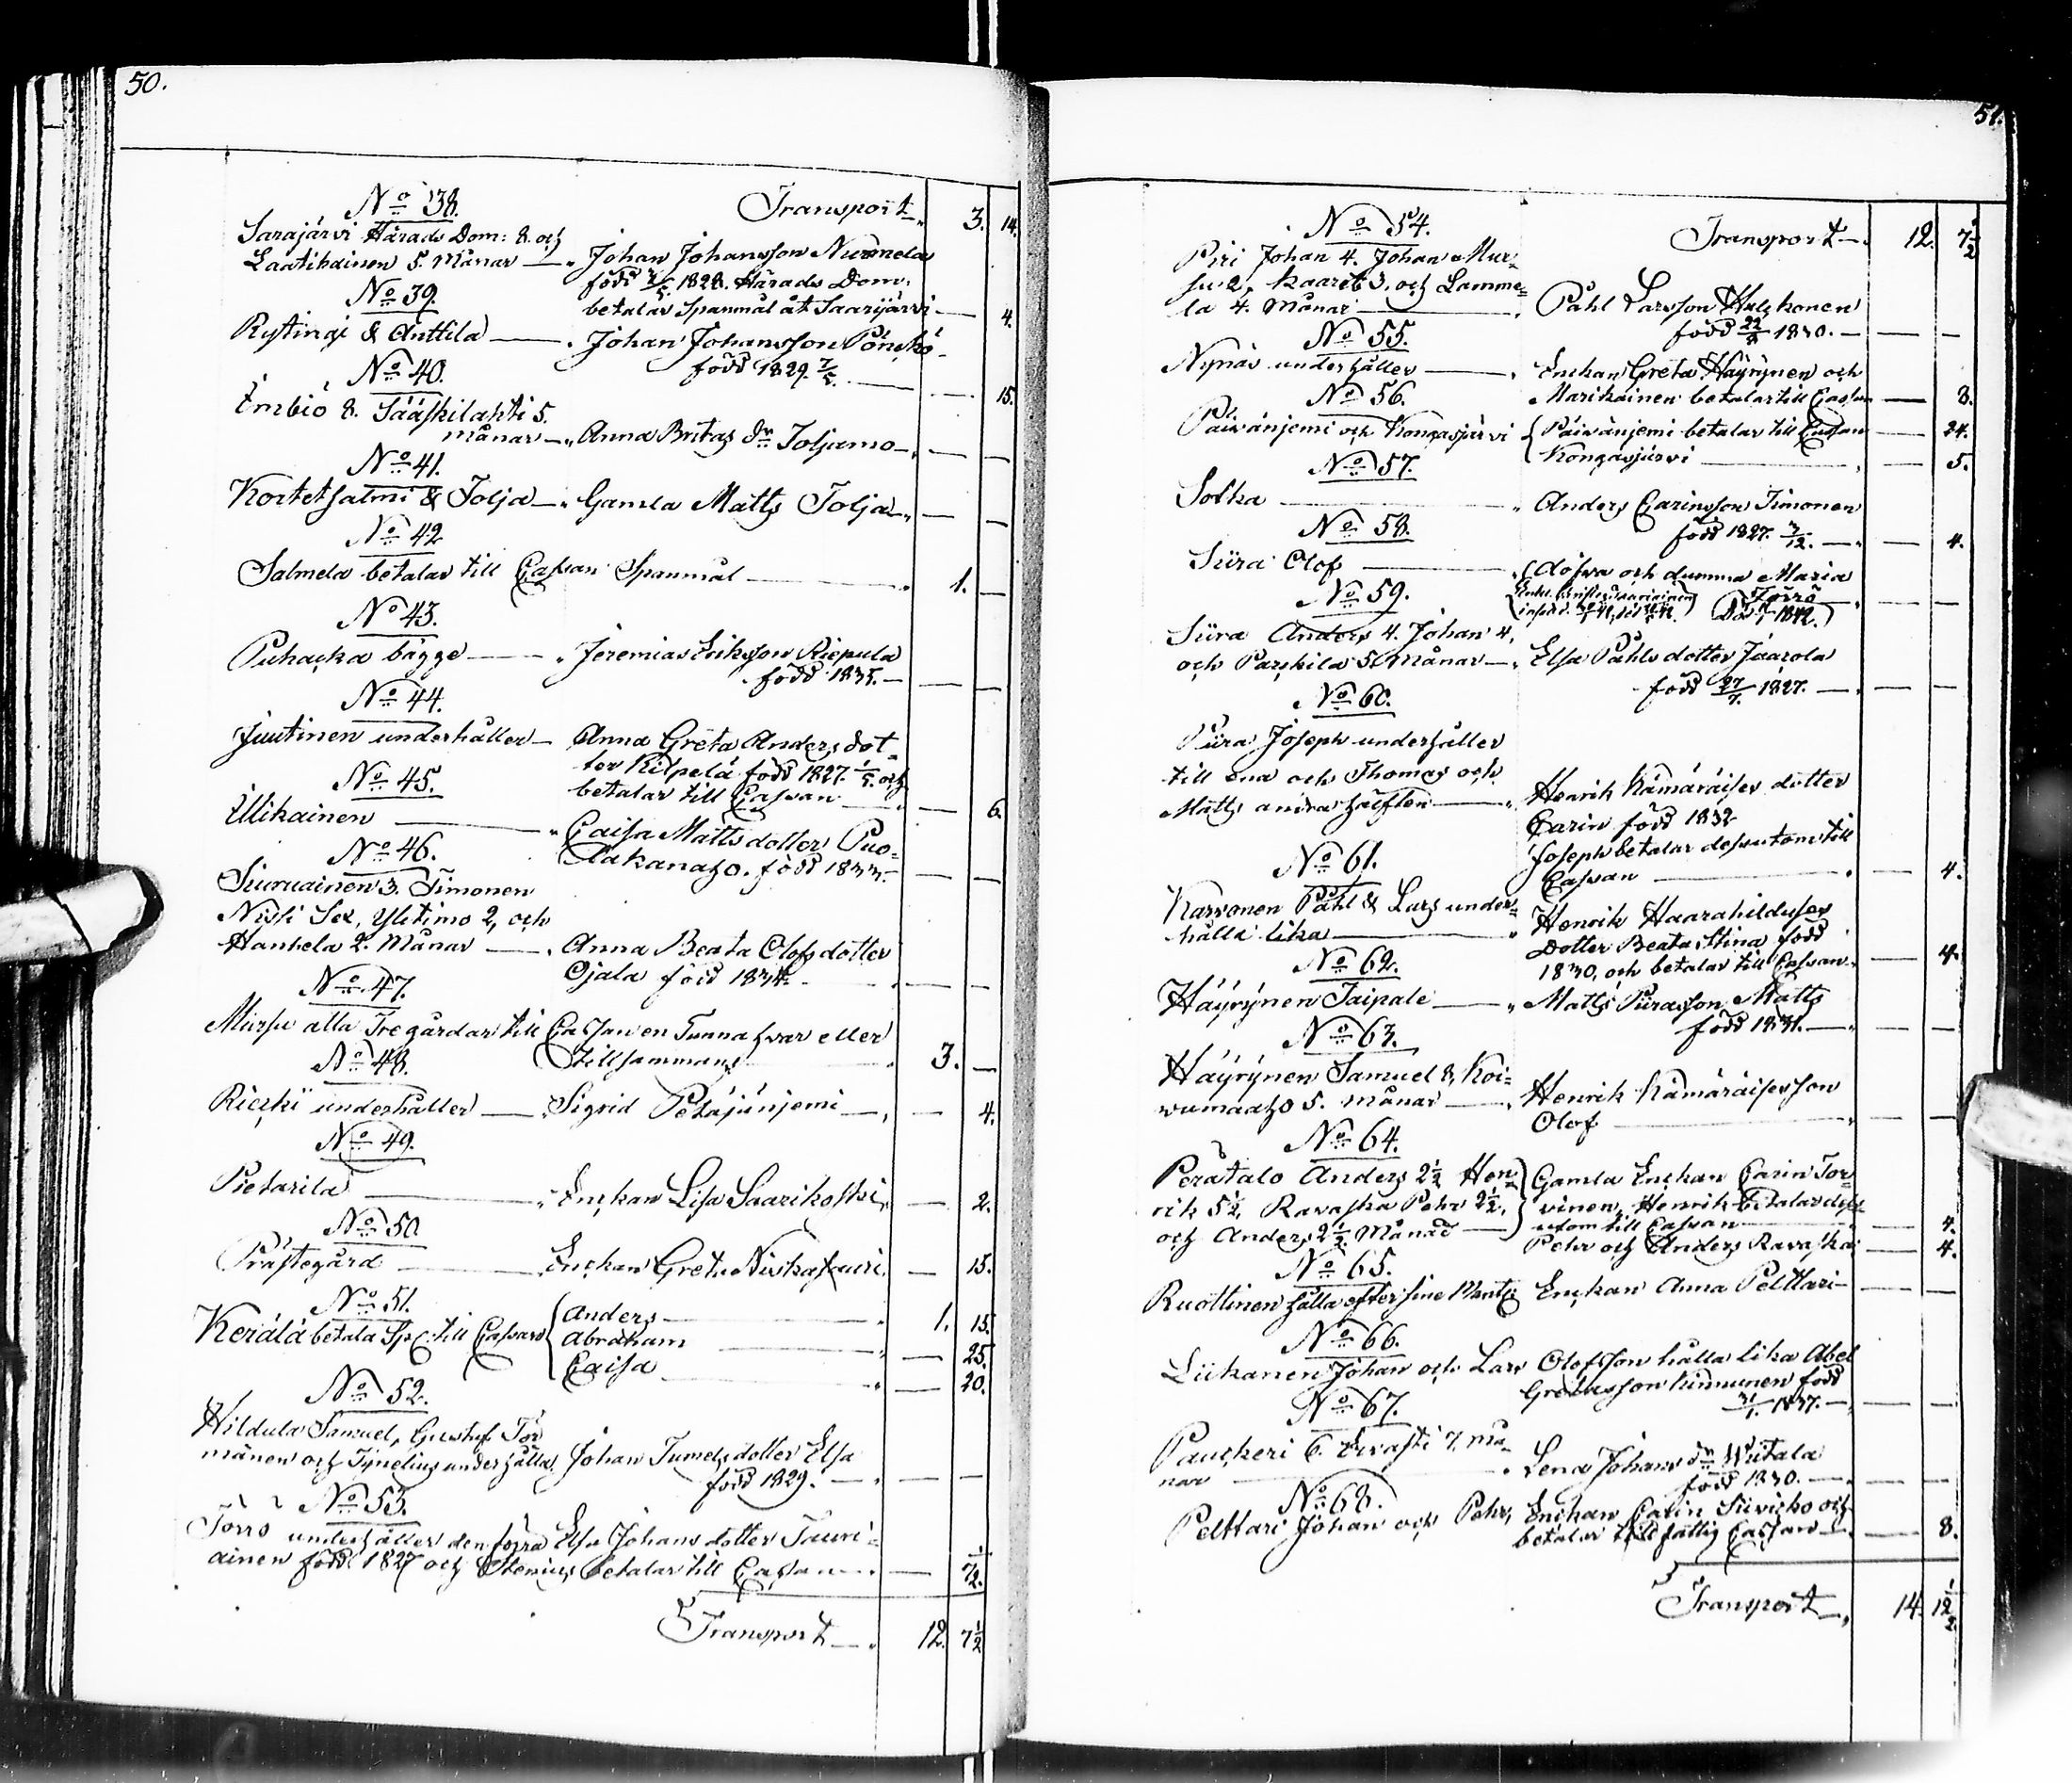 50.
No 38. Transport 3. 14.
Sarajärvi Härads Dom: 8. och
Laatikainen 5. Månar — Johan Johansson Nurmela
född 1828. Härads Dom.
betalar Spanmål åt Saarijärvi — 4.
No 39.
Rytingi & Anttila — Johan Johansson
född 1829. 7/5. — 15.
No 40.
Embiö 8. Sääskilahti 5.
månar — Anna Britas dr Toljamo — —
No 41.
Kortetsalmi & Tolja — Gamla Matts Tolja — —
No 42
Salmela betalar till Cassan Spanmål — 1. —
No 43.
Puhacka bägge — Jeremias Eriksson Riepula
född 1835. — — —
No 44.
Juutinen underhåller — Anna Greta Anders dot-
ter Kilpelä född 1827. 1/5. och
betalar till Cassan — — 6.
No 45.
Ullikainen — Caisa Matts dotter Puo-
lakanaho. född 1833. — —
No 46.
Siuruainen 3. Timonen
Nissi Sex, Ylitimo 2, och
Hanhela 2. Månar — Anna Beata Olofs dotter
Ojala född 1834. — —
No 47.
Mursu alla Tre gårdar till Cassan en Tunna hvar eller
tillsammans 3. —
No 48.
Riecki underhåller — Sigrid Petäjäniemi — — 4.
No 49.
Pietarila — Enckan Lisa Saarikoski — 2.
No 50
Prästegård — Enckan Greta Niskasauri — 15.
No 51.
Kerälä betala Sp. till Cassan { Anders 1. 15.
Abraham — 25.
Caisa — 20.
No 52.
Hildula Samuel, Gustaf Tör
mänen och Tynelius underhålla, Johan Tumels dotter Elsa
född 1829. — — —
No 53.
Törrö underhåller den förra Elsa Johans dotter Tauri-
ainen född 1827 och Stenius betalar till Cassan — — 7 1/2.
Transport — 12. 7 1/2
51.
No 54. Transport — 12. 7 1/2
Piri Johan 4. Johan Mur-
su 2, Kaaret 3, och Lamme-
la 4. Månar — Påhl Larsson
född 1830. — — —
No 55.
Nynäs underhåller — Enckan Greta Häyrynen och
Marikainen betalar till Cassan — 8.
No 56.
Päivänjemi och Kongasjärvi { Päivänjemi betalar till Cassan — 24.
Kongasjärvi — — 5.
No 57.
Sotka — Anders Carinsson Timonen
född 1827. 3/12. — — 4.
No 58.
Siira Olof — döfva och dumma Maria
Törrö
Död 1842.
No 59.
Siira Anders 4. Johan 4,
och Parkkila 5. Månar — Elsa Påhls dotter Jaarola
född 27/7. 1827. — — —
No 60.
Piira Joseph underhåller
till ena och Thomas och
Matts andra hälften — Henrik Kämäräises dotter
Carin född 1832
Joseph betalar dessutom till
Cassan — — 4.
No 61.
Karvonen Påhl & Lars under-
hålla lika — Henrik Haarahilduses
Dotter Beata Stina född
1830, och betalar till Cassan — 4.
No 62.
Häyrynen Taipale — Matts Piirasson Matts
född 1831. — — —
No 63.
Häyrynen Samuel 8, Koi-
vumaaho 5. Månar — Henrik Kämäräisesson
Olof — — —
No 64.
Perätalo Anders 2 1/2 Hen-
rik 5 1/2, Ravaska Pehr 2 1/2,
och Anders 2 1/2 Månad } Gamla Enckan Carin Tor-
vinen, Henrik betalar dess
utom till Cassan — 4.
Pehr och Anders Ravaska — 4.
No 65.
Ruottinen hålla efter sine Mantal Enckan Anna Pelttari — —
No 66.
Liikanen Johan och Lars Olofsson hålla lika Abel
Gretasson Kinnunen född
31/1. 1837. — — —
No 67.
Pauckeri 6. Ervasti 7. Må-
nar — Lena Johans dr Wiitala
född 1830. — — —
No 68.
Pelttari Johan och Pehr, Enckan Carin Siivicko och
betalar till fattig Cassan — — 8.
Transport — 14. 12 1/2